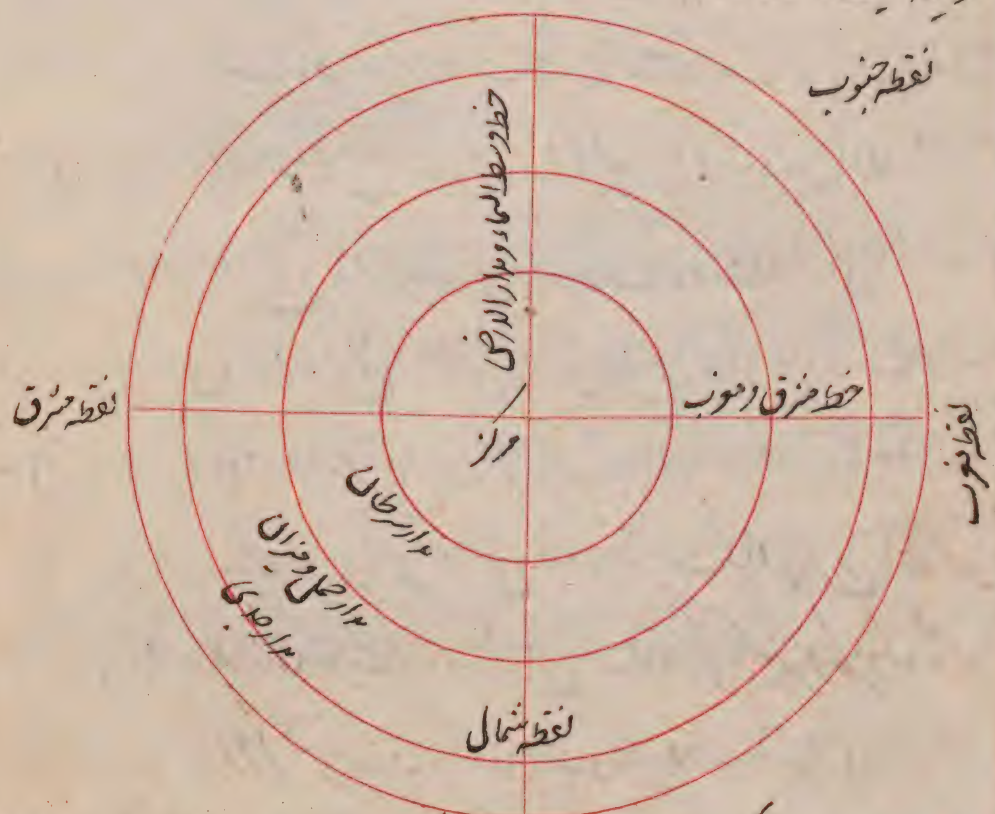 نقطه جنوب
خط وسط السماء و مدار الارض
نقطه مشرق
خط مشرق و مغرب
نقطه مغرب
مرکز
مدار سرطان
مدار حمل و میزان
مدار جدی
نقطه شمال